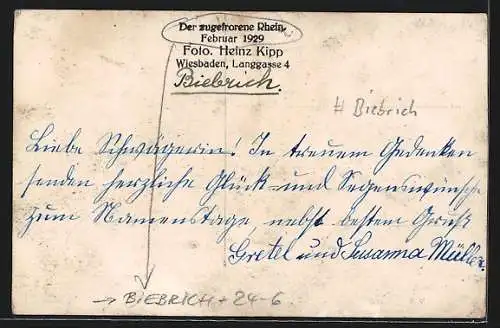 Der zugefrorene Rhein
Februar 1929
Foto. Heinz Kipp
Wiesbaden, Langgasse 4
Biebrich.
# Biebrich
Liebe Schwägerin! In treuem Gedenken
senden herzliche Glück- und Segenswünsche
zum Namenstage, nebst bestem Gruß
Gretel und Susanna Müller.
→ BIEBRICH + 24-6